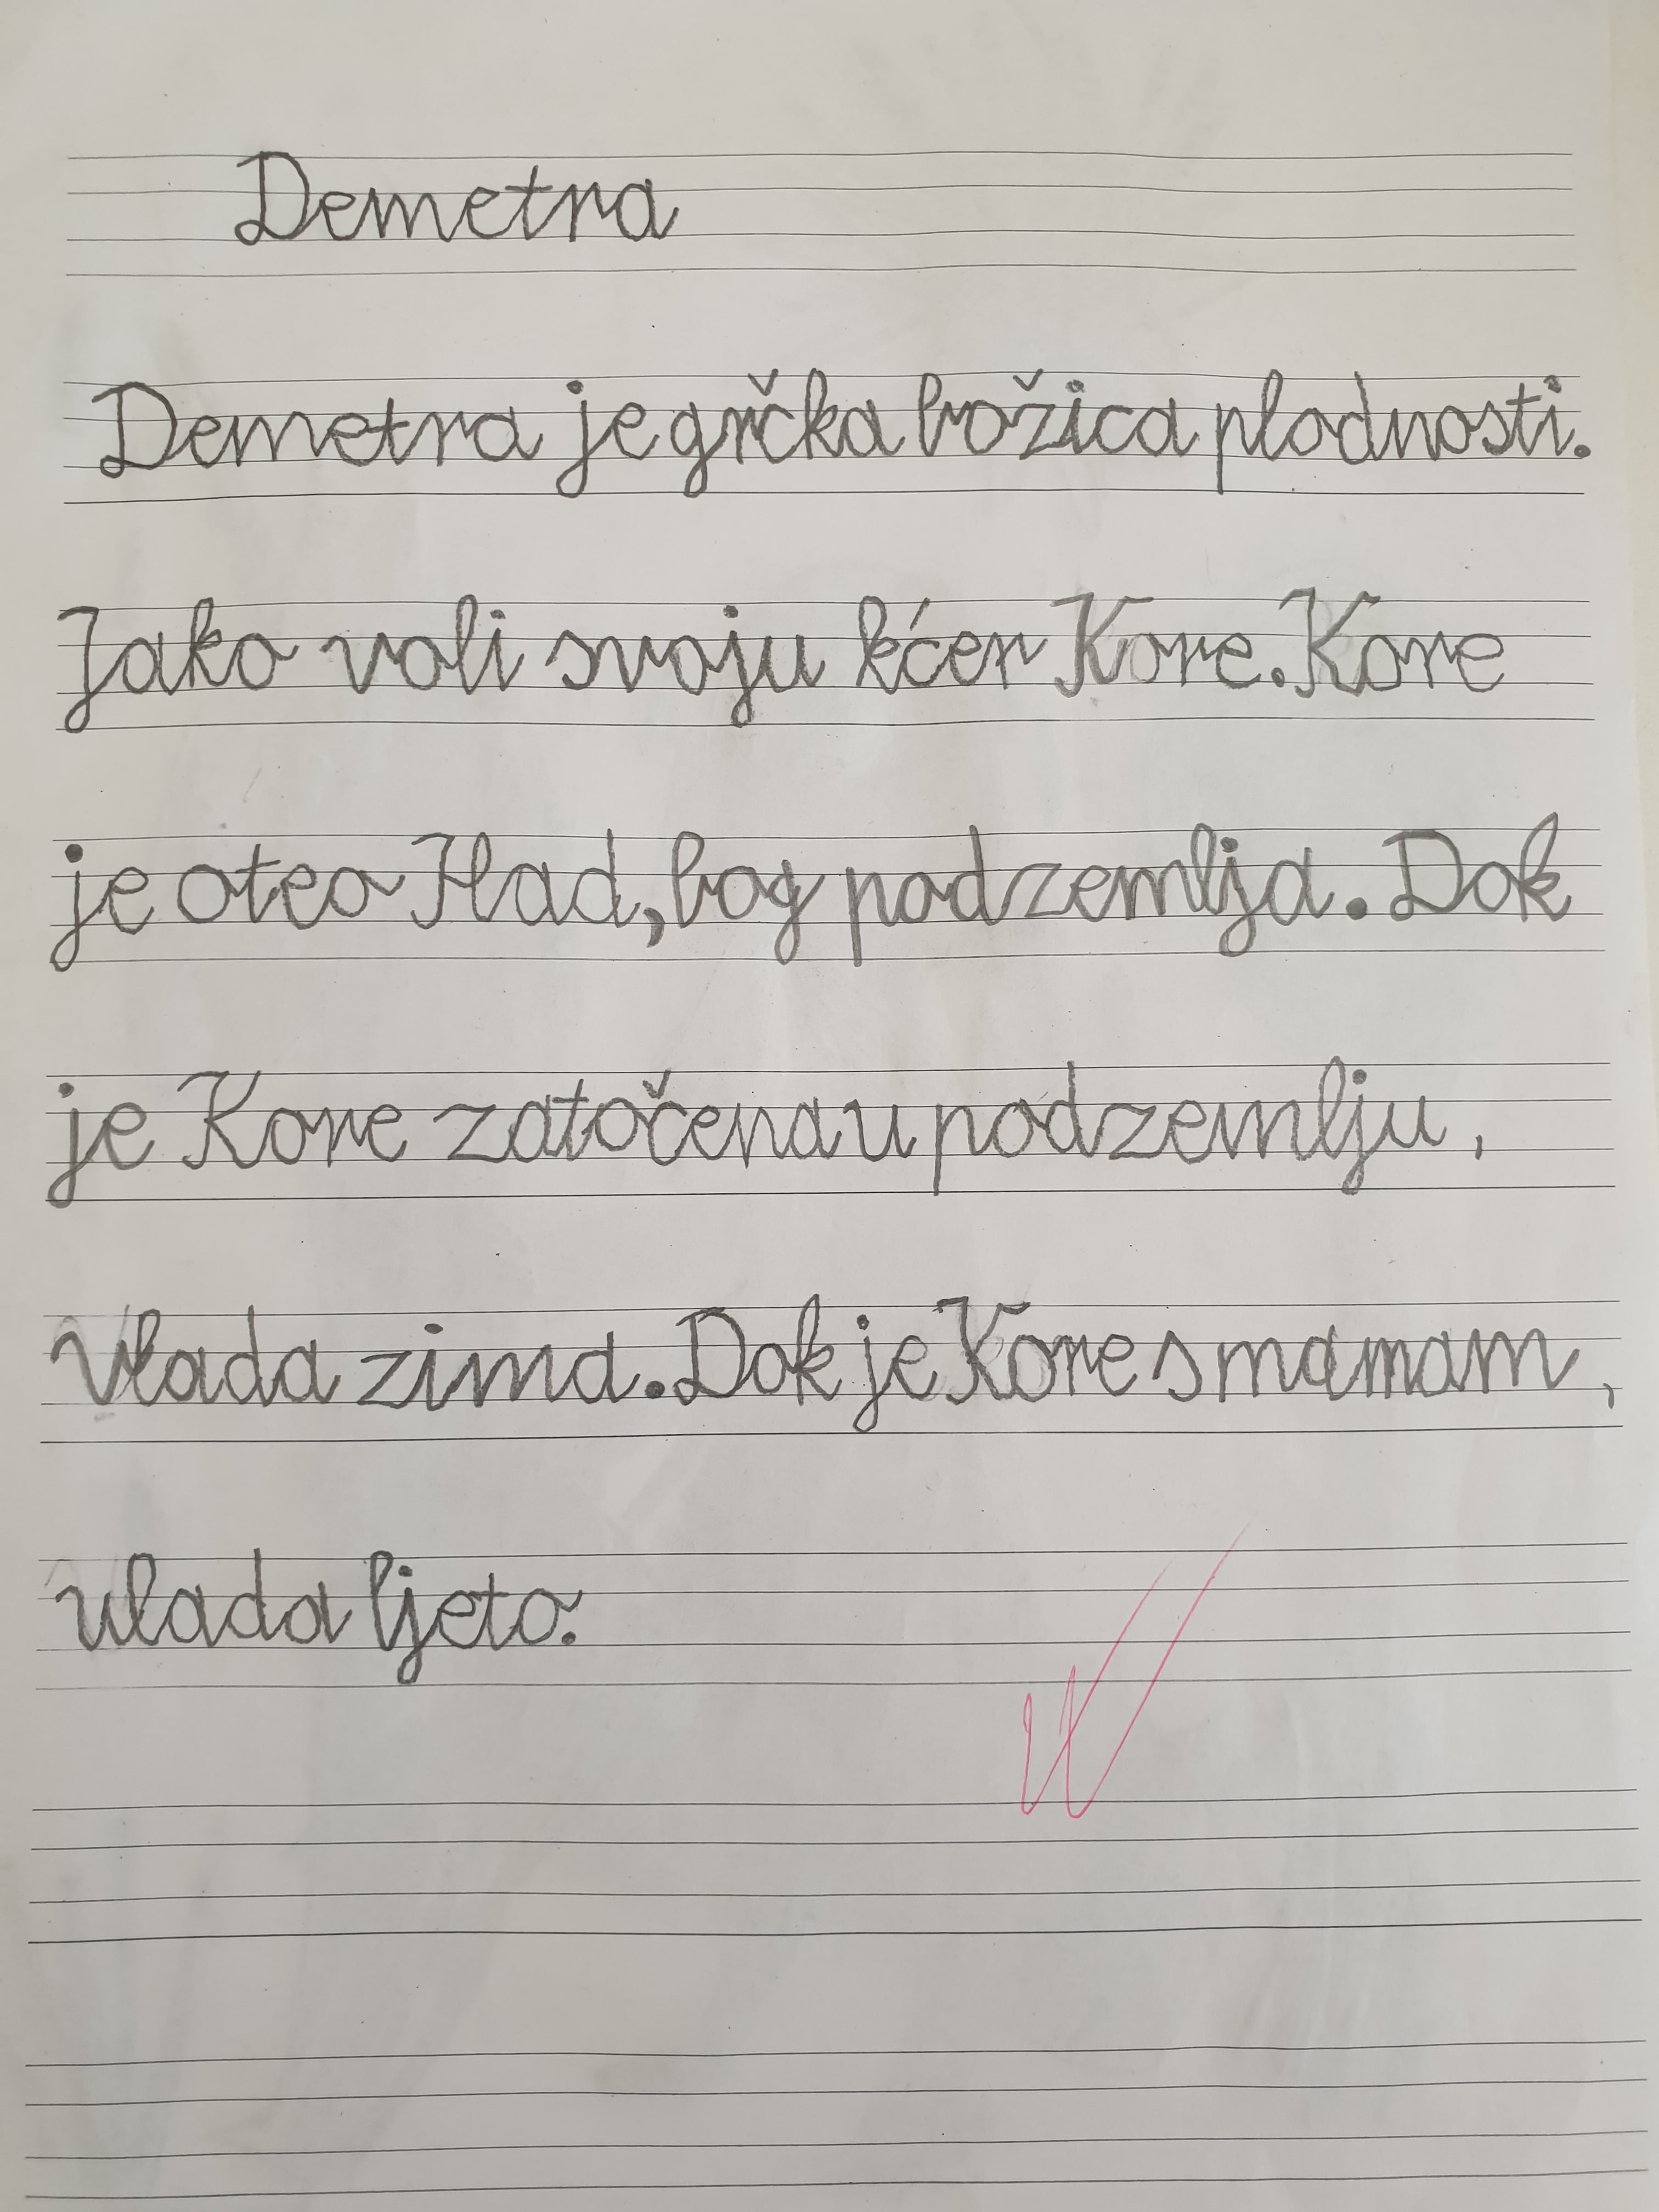 Demetra
Demetra je grčka božica plodnosti.
Jako voli svoju kćer Kore. Kore
je oteo Had, bog podzemlja. Dok
je Kore zatočena u podzemlju,
vlada zima. Dok je Kore s mamam,
vlada ljeto.